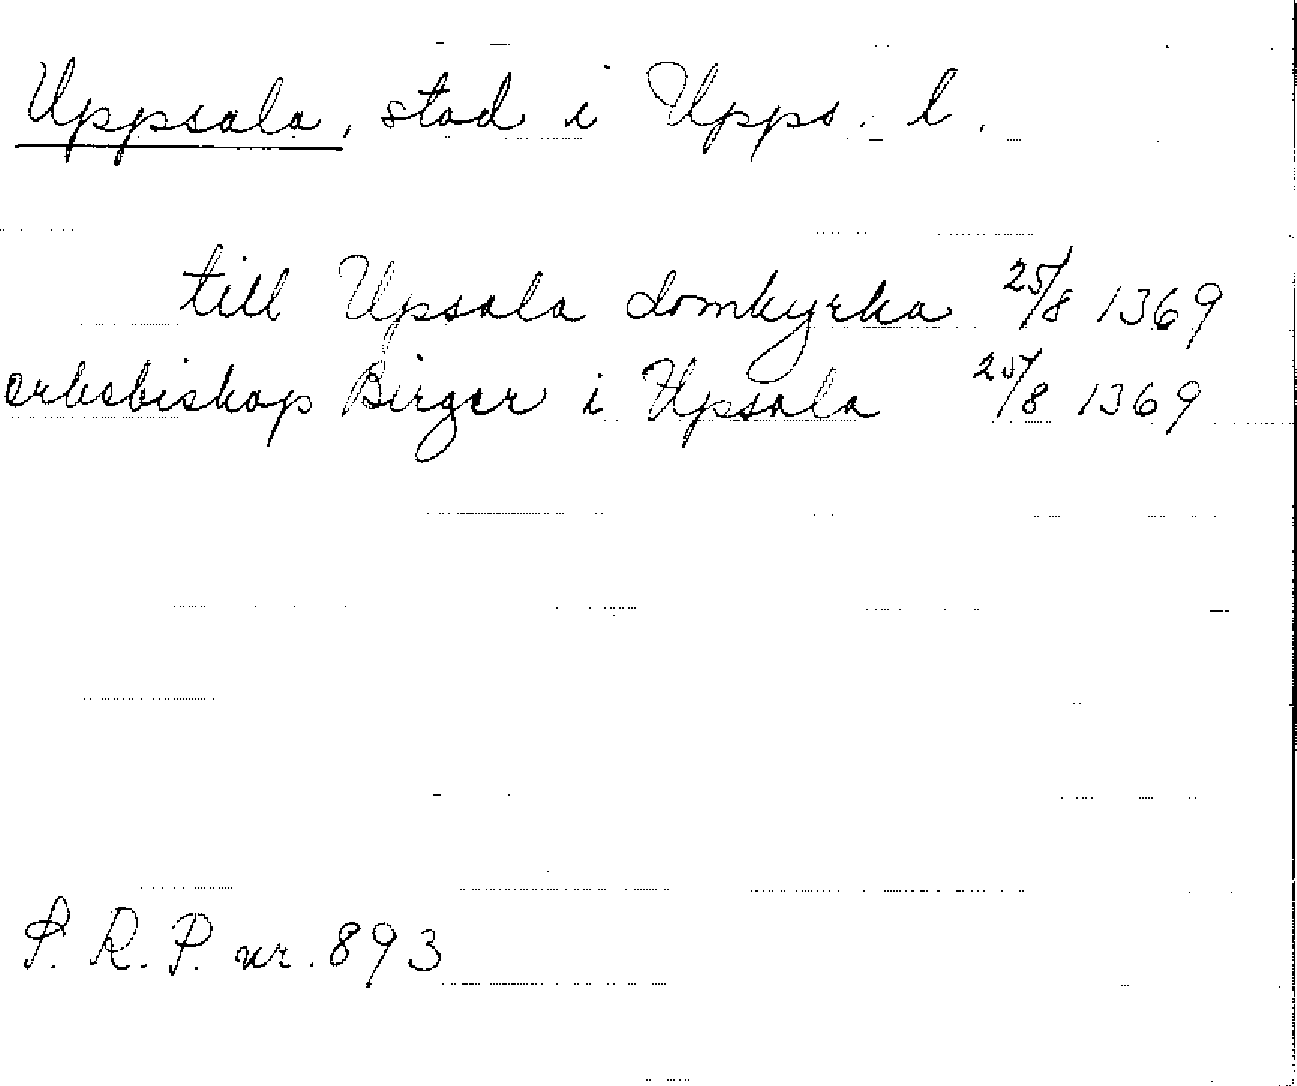 Uppsala, stad i Upps. l.
till Upsala domkyrka 25/8 1369
erkebiskop Birger i Upsala 25/8 1369
P. R. P. nr. 893